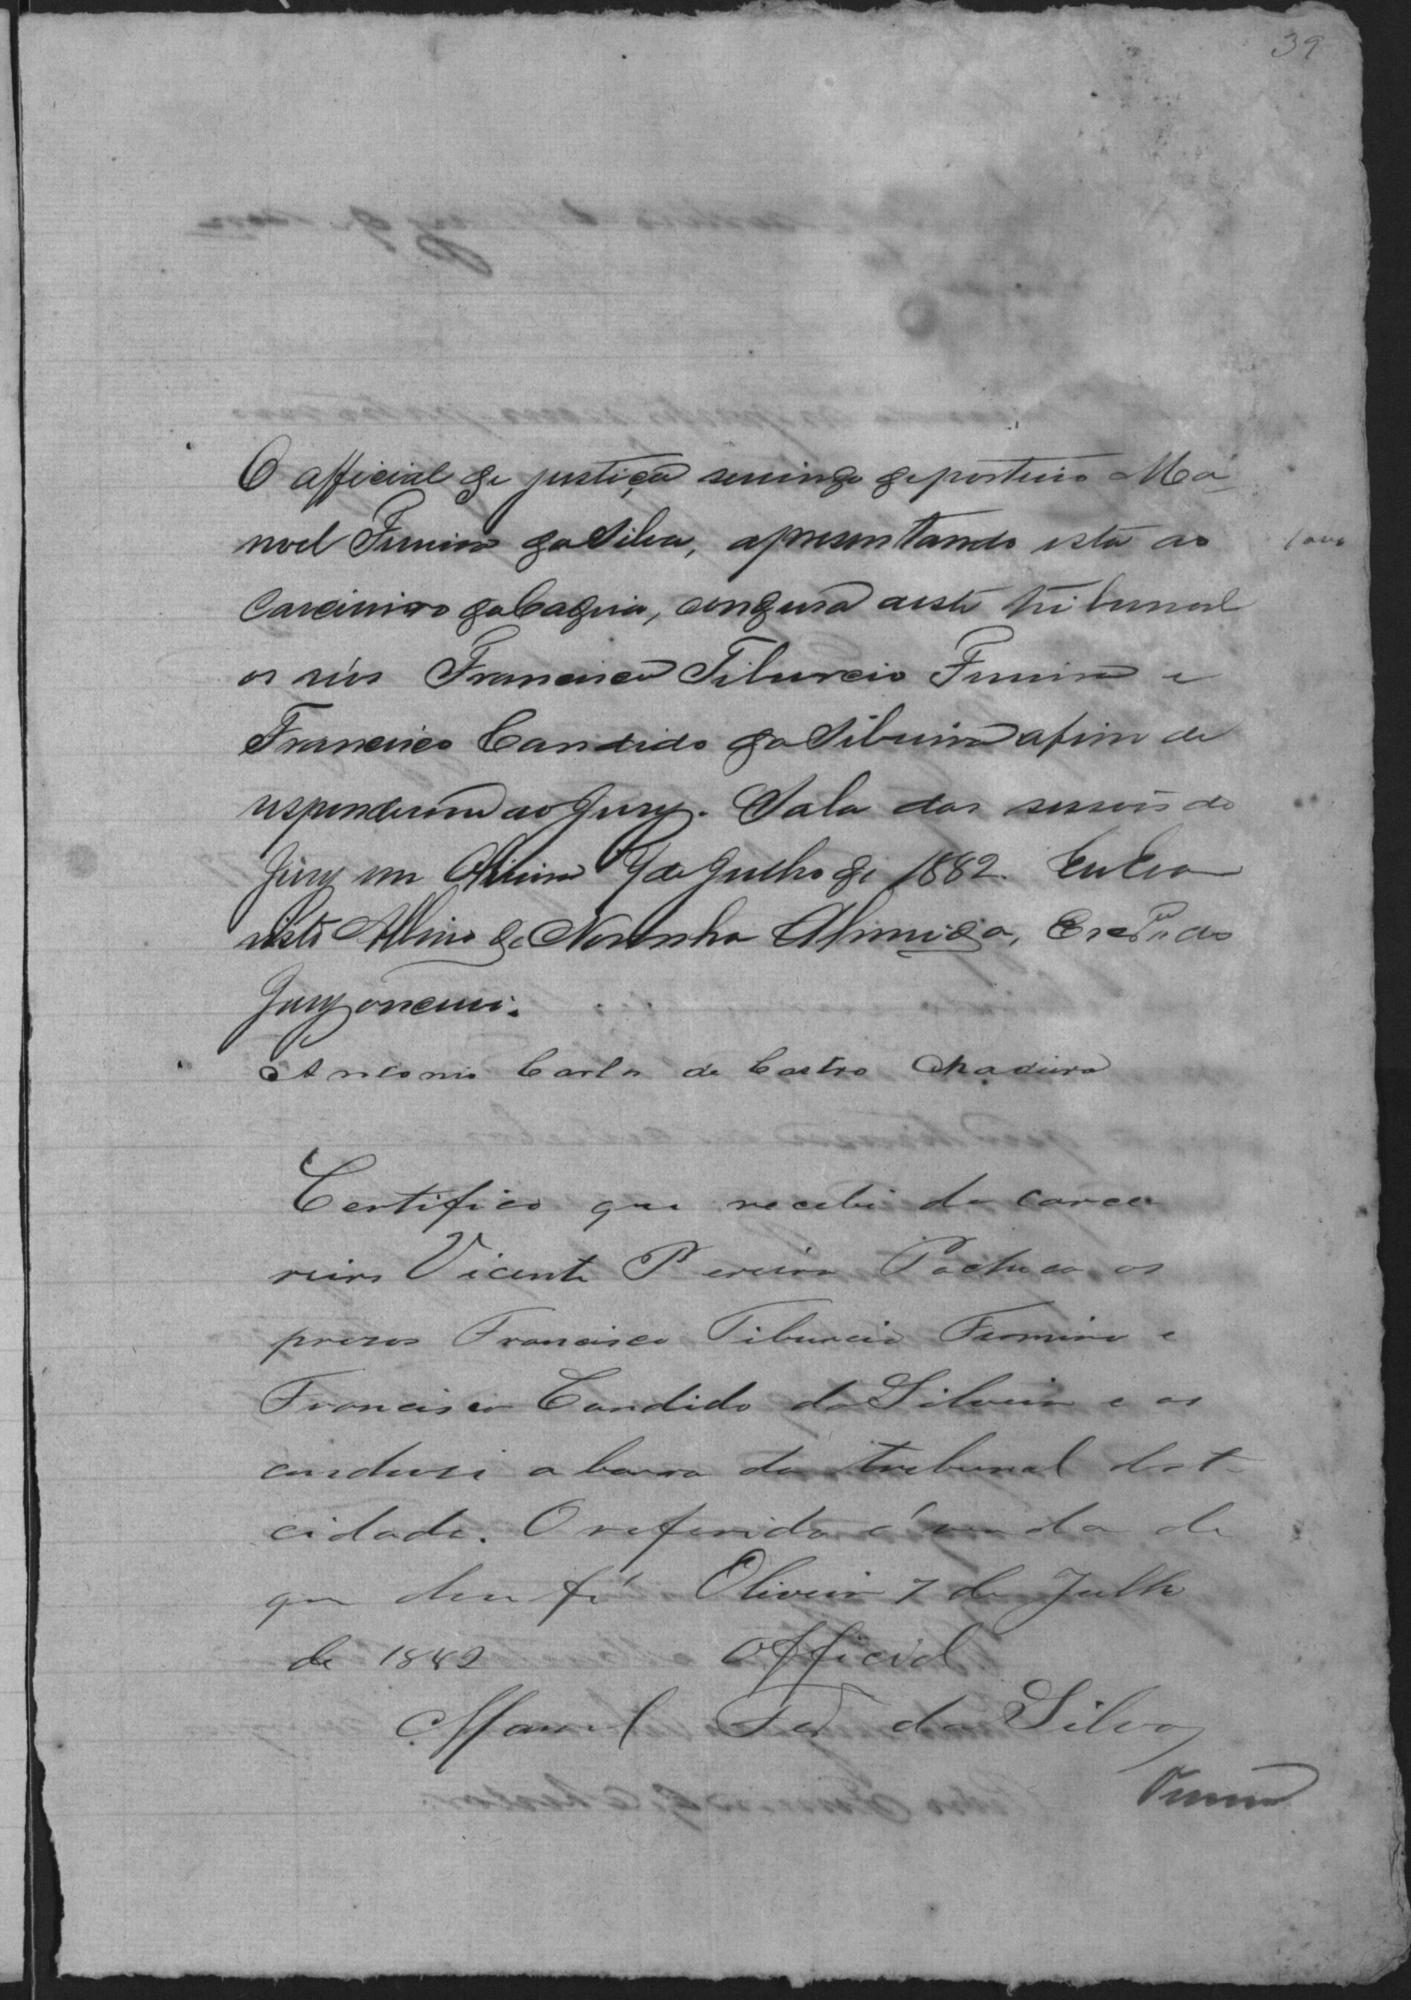 39
O official de justiça servindo de porteiro Ma-
noel Firmino da Silva, apresentando esta ao
Carcereiro da Cadeia, condusa a este tribunal
os réos Francisco Tiburcio Firmino e
Francisco Candido da Silveira afim de
responderem ao Jury. Sala das sessões do
Jury em Oliveira 7 de Julho de 1882. Eu Eva
risto Albino de Noronha Almeida, Escr.am do
Jury o escrevi.
Antonio Carlos de Castro Madeira
Certifico que recebi do carce
reiro Vicente Pereira Pacheco os
prezos Francisco Tiburcio Firmino e
Francisco Candido da Silveira e os
condusi a barra do tribunal dest
cidade. O referido é verdade de
que dou fé Oliveira 7 de Julho
de 1882 Official
Manoel da Silva